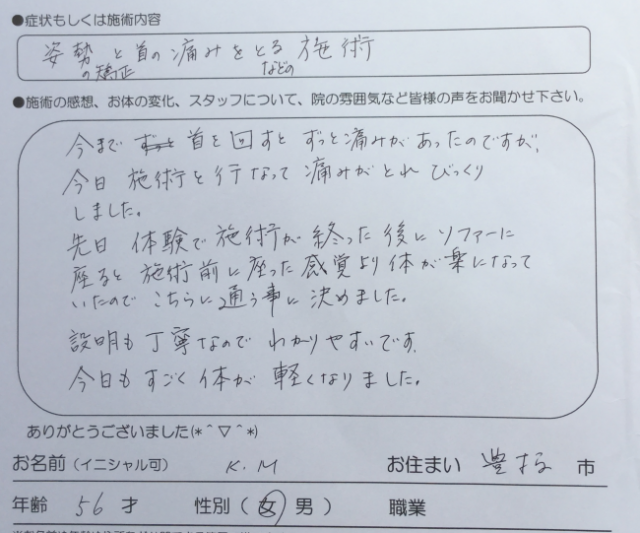 ●症状もしくは施術内容
姿勢の矯正と首の痛みをとるなどの施術
●施術の感想、お体の変化、スタッフについて、院の雰囲気など皆様の声をお聞かせ下さい。
今まで 首を回すと ずっと痛みがあったのですが、
今日 施術を行なって痛みがとれ びっくり
しました。
先日 体験で施術が終った後に ソファーに
座ると 施術前に座った感覚より体が楽になって
いたので こちらに通う事に決めました。
説明も丁寧なので わかりやすいです。
今日も すごく体が 軽くなりました。
ありがとうございました(*^▽^*)
お名前(イニシャル可) K.M お住まい 豊 市
年齢 56 才 性別( 女 男 ) 職業